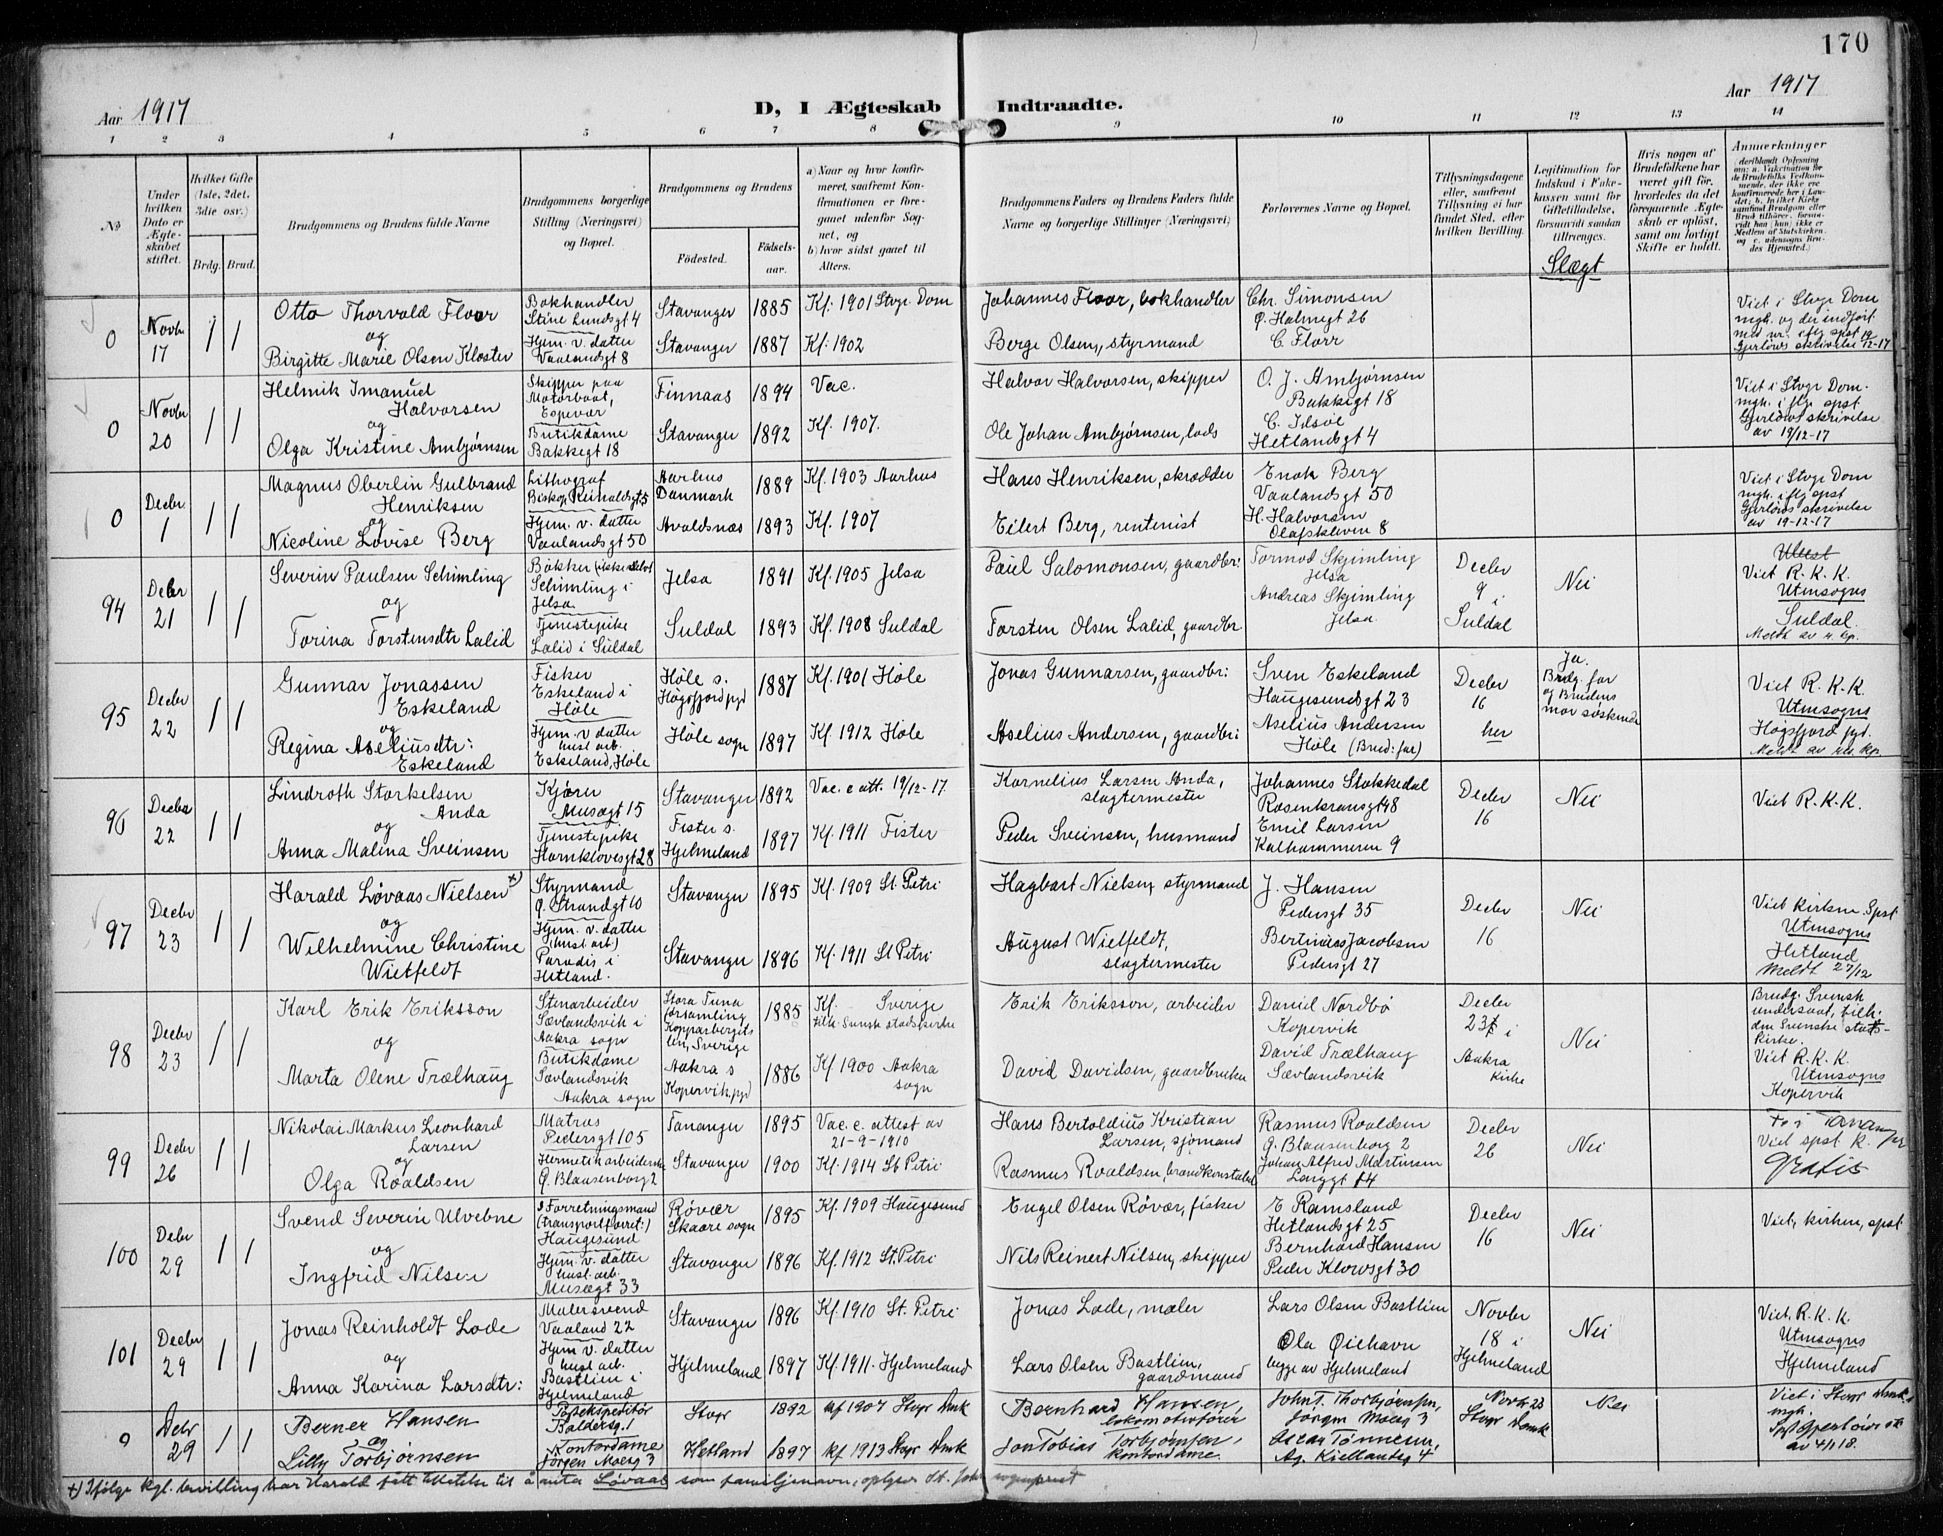 170
Aar 1917
D, I Ægteskab Indtraadte.
Aar 1917
1 2 3 4 5 6 7 8 9 10 11 12 13 14
No
Under hvilken Dato er Ægteskabet stiftet.
Hvilket Gifte (1ste, 2det, 3die osv.)
Brdg. Brud.
Brudgommens og Brudens fulde Navne
Brudgommens borgerlige Stilling (Næringsvei) og Bopæl.
Brudgommens og Brudens
Fødested.
Fødselsaar.
a) Naar og hvor konfirmeret, saafremt Konfirmationen er foregaaet udenfor Sognet, og
b) hvor sidst gaaet til Alters.
Brudgommens Faders og Brudens Faders fulde Navne og borgerlige Stillinger (Næringsvei)
Forlovernes Navne og Bopæl.
Tillysningsdagene eller, saafremt Tillysning ei har fundet Sted, efter hvilken Bevilling.
Legitimation for Indskud i Enkekassen samt for Giftetilladelse, forsaavidt saadan tiltrænges.
Slægt
Hvis nogen af Brudefolkene har været gift før, hvorledes da det foregaaende Ægteskab er opløst, samt om lovligt Skifte er holdt.
Anmerkninger
0 Novbr 17 1 1
Otto Thorvald Floor
og
Birgitte Marie Olsen Kloster
Bokhandler
Stine Lundsgt 4
Hjem. v. datter
Vaalandsgt 8
Stavanger 1885 Kf: 1901 Stvgr Dom
Stavanger 1887 Kf: 1902
Johannes Floor, bokhandler
Berge Olsen, styrmand
Chr. Simonsen
Ø. Holmegt 26
C. Floor
Viet i Stvgr Dom
mgh. og der indført
med nr. iflg spst
Gjerløws skrivelse 19/12-17
0 Novbr 20 1 1
Helmik Imanuel
Halvorsen
og
Olga Kristine Ambjørnsen
Skipper paa
Motorbaat,
Espevær
Butikdame
Bakkegt 18
Finnaas 1894 Vac.
Stavanger 1892 Kf. 1907.
Halvor Halvorsen, skipper
Ole Johan Ambjørnsen, lods
O. J. Ambjørnsen
Bakkegt 18
Hetlandsgt 4
Viet i Stvgr Dom.
mgh. i flg spst.
Gjerløws skrivelse
av 19/12-17
0 Decbr 1 1 1
Magnus Oberlin Gulbrand
Henriksen
og
Nicoline Lovise Berg
Lithograf
Biskop Reinaldsgt 5
Hjem. v. datter
Vaalandsgt 50
Aarhus
Danmark 1889 Kf. 1903 Aarhus
Avaldsnæs 1893 Kf. 1907
Hans Henriksen, skrædder
Eilert Berg, rentenist
Enok Berg
Vaalandsgt 50
H. Halvorsen
Olafskleven 8
Viet i Stvgr Dom
mgh. i flg spst
Gjerløws skrivelse
av 19-12-17
94 Decbr 21 1 1
Severin Paulsen Schimling
og
Torina Torstensdtr Lalid
Schimling i
Jelsa
Tjenestepike
Lalid i Suldal
Jelsa 1891 Kf. 1905 Jelsa
Suldal 1893 Kf. 1908 Suldal
Paul Salomonsen, gaardbr:
Torsten Olsen Lalid, gaardbr
Tormod Skjimling
Jelsa
Andreas Skjimling
Jelsa
Decbr
9 i
Suldal
Nei
Viet R.K.K.
Utensogns
Suldal.
95 Decbr 22 1 1
Gunnar Jonassen
Eskeland
og
Regina Aseliusdtr:
Eskeland
Fisker
Eskeland i
Høle
Hjem. v datter
hust arb.
Eskeland, Høle
Høle s.
Høgsfjord pgd 1887 Kf. 1901 Høle
Høle sogn 1897 Kf. 1912 Høle
Jonas Gunnarsen, gaardbr:
Aselius Andersen, gaardbr:
Sven Eskeland
Haugesundsgt 23
Aselius Andersen
Høle (Brud: far)
Decbr
16
her
Ja.
Brdg. far
og Brudens
mor søskende
Viet R.K.K.
Utensogns
Høgsfjord pgd.
96 Decbr 22 1 1
Lindroth Storkelsen
Anda
og
Anna Malina Sveinsen
Kjører
Musægt 15
Tjenestepike
Hornklovesgt 28
Stavanger 1892 Vac. c att. 19/12-17
Fister s.
Hjelmeland 1897 Kf. 1911 Fister
Kornelius Larsen Anda,
slagtermester
Peder Sveinsen, husmand
Johannes Stokkedal
Rosenkransgt 48
Emil Larsen
Kalhammeren 9
Decbr
16
Nei
Viet R.K.K.
97 Decbr 23 1 1
Harald Løvaas Nielsen x)
og
Wilhelmine Christine
Wietfeldt
Styrmand
Ø. Strandgt 10
Hjem. v. datter
(hust arb)
Paradis i
Hetland.
Stavanger 1895 Kf. 1909 St. Petri
Stavanger 1896 Kf. 1911 St Petri
Hagbart Nielsen, styrmand
August Wietfeldt,
slagtermester
J. Hansen
Pedersgt 35
Bertinius Jacobsen
Pedersgt 27
Decbr
16
Nei
Viet kirken. Spst
Utensogns
Hetland
Meldt 27/12
98 Decbr 23 1 1
Karl Erik Eriksson
og
Marta Olene Trælhaug
Stenarbeider
Sævlandsvik i
Aakra sogn
Butikdame
Sævlandsvik
Aakra sogn
Stora Tuna
församling
Kopparbergets
len, Sverige 1885 Kf. Sverige
tilh. Svensk statskirke
Aakra s
Kopervik pgd 1886 Kf 1900 Aakra
sogn
Erik Eriksson, arbeider
David Davidsen, gaardbruker
Daniel Nordbø
Kopervik
David Trælhaug
Sævlandsvik
Decbr
23 i
Aakra
kirke
Nei
Brudg. Svensk
undersaat, tilh.
den Svenske stats-
kirke.
Viet R.K.K.
Utensogns
Kopervik
99 Decbr 26 1 1
Nikolai Markus Leonhard
Larsen
og
Olga Roaldsen
Matros
Pedersgt 105
Hermetikarbeiderske
Ø. Blaasenborg 2
Tananger 1895 Vac. c. attest av
21-9-1910
Stavanger 1900 Kf. 1914 St Petri
Hans Bertoldius Kristian
Larsen, sjømand
Rasmus Roaldsen, brandkonstabel
Rasmus Roaldsen
Ø. Blaasenborg 2
Johan Alfred Martinsen
Langgt 14
Decbr
26
Nei
Viet spst k.
Gratis
100 Decbr 29 1 1
Svend Severin Ulvebne
og
Ingfrid Nilsen
Forretningsmand
(transportforret:)
Haugesund
Hjem. v. datter
hust. arb.
Musægt 33
Røvær
Skaare sogn 1895 Kf. 1909 Haugesund
Stavanger 1896 Kf. 1912 St. Petri
Engel Olsen Røvær, fisker
Nils Reinert Nilsen, skipper
E Ramsland
Hetlandsgt 25
Bernhard Hansen
Peder Klowsgt 30
Decbr
16
Nei
Viet, kirken, spst
101 Decbr 29 1 1
Jonas Reinholdt Lode
og
Anna Karina Larsdtr:
Malersvend
Vaaland 22
Hjem v. datter
hust arb.
Bastlien i
Hjelmeland
Stavanger 1896 Kf. 1910 St. Petri
Hjelmeland 1897 Kf. 1911 Hjelmeland
Jonas Lode, maler
Lars Olsen Bastlien,
gaardmand
Lars Olsen Bastlien
Ola Øiehavn
begge av Hjelmeland
Novbr
18 i
Hjelmeland
Nei
Viet. R.K.K.
Utensogns
Hjelmeland
Debr 29 1 1
Berner Hansen
og
Lilly Torbjørnsen
Baldersg. 1
Kontordame
Jørgen Moesg 3
Stvgr 1892 kf 1907 Stvgr Dmk
Hetland 1897 kf 1913 Stvgr Dmk
Bernhard Hansen,
lokomotivfører
Jon Tobias Torbjørnsen,
John T. Thorbjørnsen,
Jørgen Moesg 3
Oscar Tønnesen,
Ag. Kiellandsg 4
Novbr 23
Stvgr Domk
Nei
Viet i Stvgr Domk.
mgh.
av 4/1 18.
x) Ifølge kgl. bevilling har Harald fått tillatelse til å nita Løvaas som familjenavn, oplyser St. Joh. sogneprest